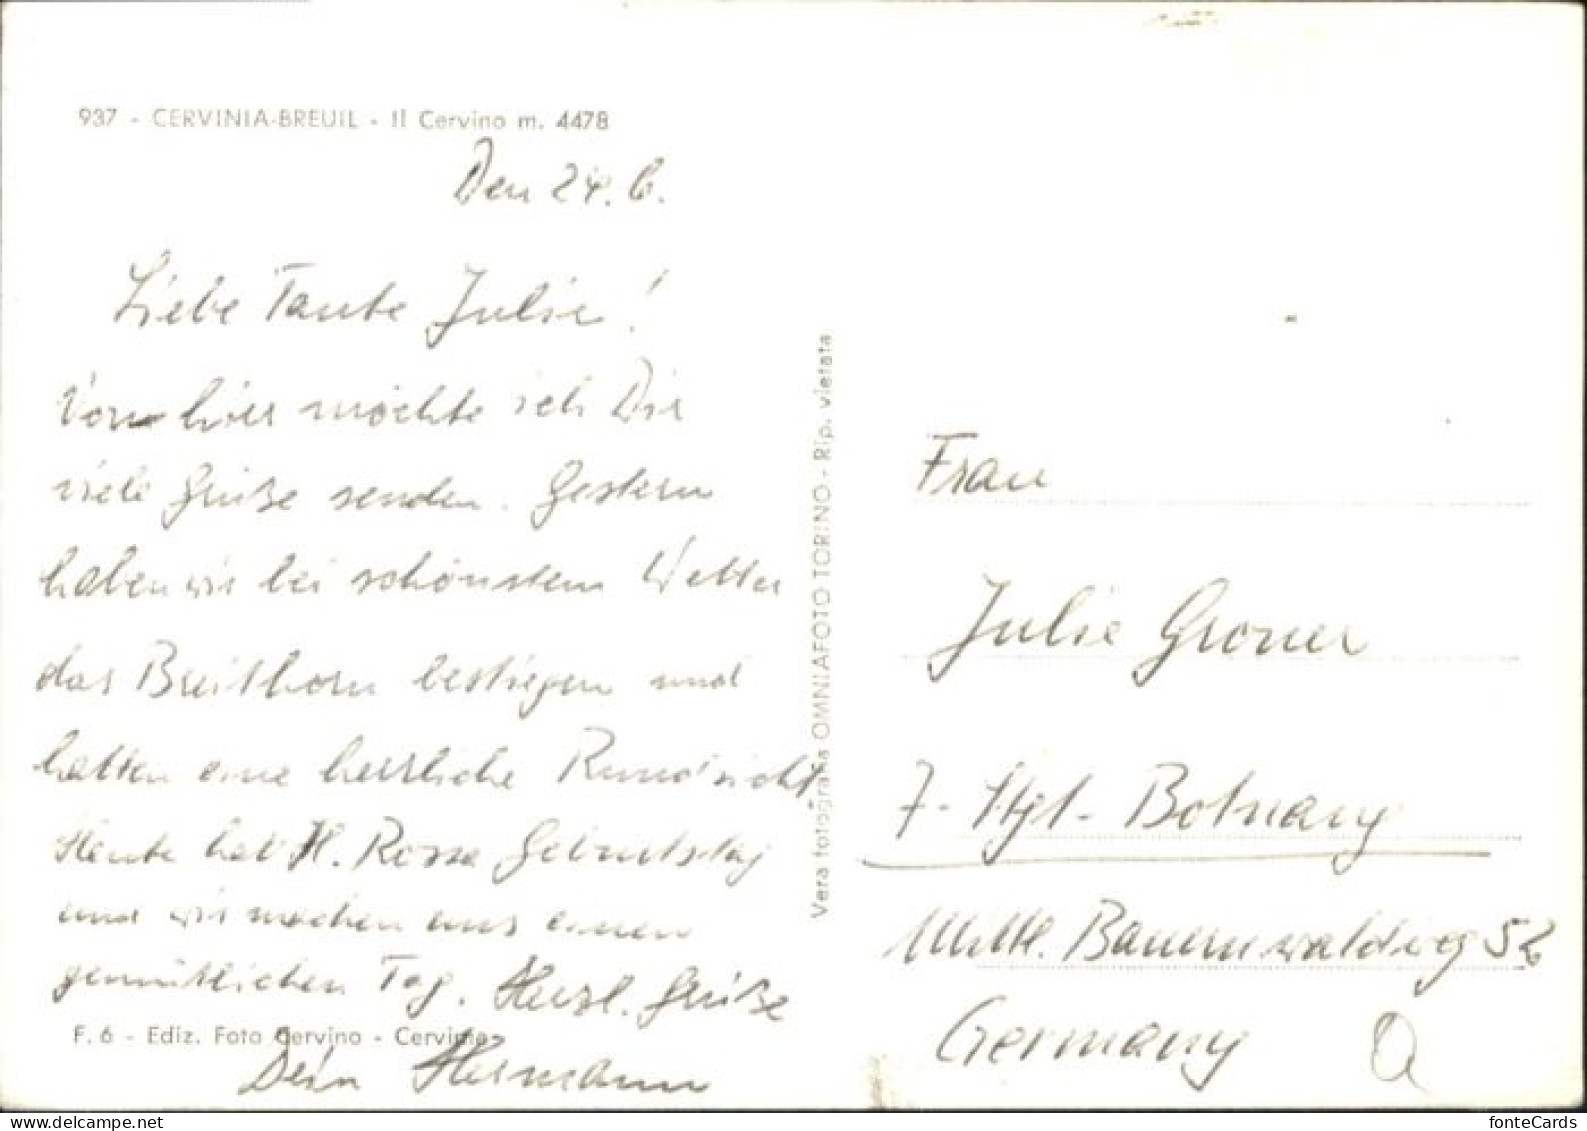 937 - CERVINIA-BREUIL - Il Cervino m. 4478
Den 24. 6.
Liebe Tante Julie!
Von hier möchte ich Dir
viele Grüße senden. Gestern
haben wir bei schönstem Wetter
das Breithorn bestiegen und
hatten eine herrliche Rundsicht
Heute hat H. Rosse Geburtstag
und wir machen uns einen
gemütlichen Tag. Herzl. Grüße
F. 6 - Ediz. Foto Cervino - Cervinia
Dein Hermann
Vera fotografia OMNIAFOTO TORINO - Rip. vietata
Frau
Julie Groner
7 - Stgt - Botnang
Mittl. Bauernwaldweg 52
Germany
fonteCards